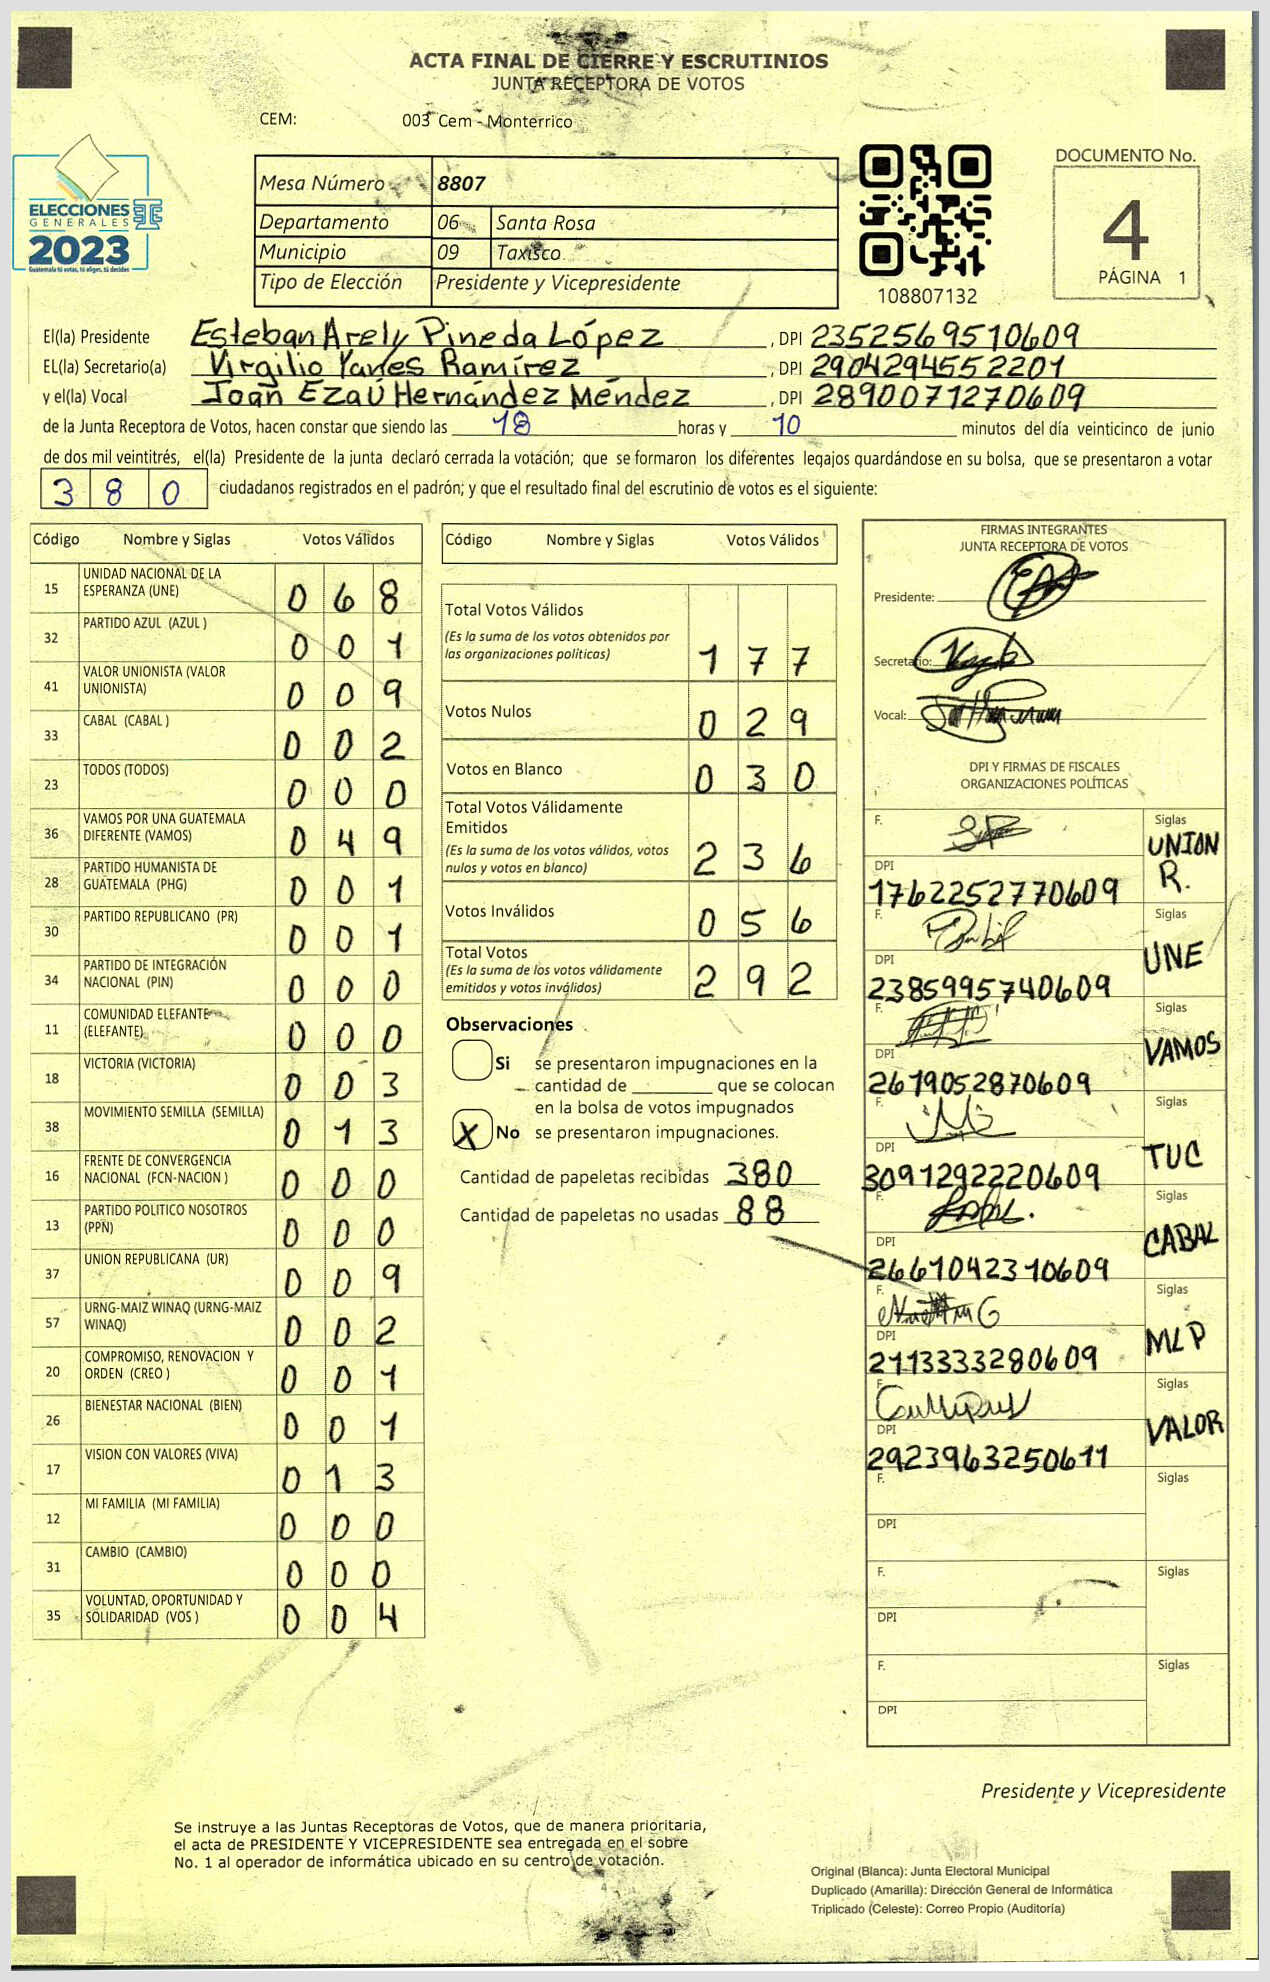 ACTA FINAL DE CIERRE Y ESCRUTINIOS
JUNTA RECEPTORA DE VOTOS
CEM: 003 Cem - Monterrico
ELECCIONES
GENERALES
2023
Guatemala tú votas, tú eliges, tú decides
Mesa Número 8807
Departamento 06 Santa Rosa
Municipio 09 Taxisco
Tipo de Elección Presidente y Vicepresidente
108807132
DOCUMENTO No.
4
PÁGINA 1
El(la) Presidente Esteban Arely Pineda López, DPI 2352569510609
EL(la) Secretario(a) Virgilio Yanes Ramírez, DPI 2904294552201
y el(la) Vocal Joan Ezaú Hernández Méndez, DPI 2890071270609
de la Junta Receptora de Votos, hacen constar que siendo las 18 horas y 10 minutos del día veinticinco de junio
de dos mil veintitrés, el(la) Presidente de la junta declaró cerrada la votación; que se formaron los diferentes legajos guardándose en su bolsa, que se presentaron a votar
380 ciudadanos registrados en el padrón; y que el resultado final del escrutinio de votos es el siguiente:
Código Nombre y Siglas Votos Válidos
15 UNIDAD NACIONAL DE LA ESPERANZA (UNE) 068
32 PARTIDO AZUL (AZUL ) 001
41 VALOR UNIONISTA (VALOR UNIONISTA) 009
33 CABAL (CABAL ) 002
23 TODOS (TODOS) 000
36 VAMOS POR UNA GUATEMALA DIFERENTE (VAMOS) 049
28 PARTIDO HUMANISTA DE GUATEMALA (PHG) 001
30 PARTIDO REPUBLICANO (PR) 001
34 PARTIDO DE INTEGRACIÓN NACIONAL (PIN) 000
11 COMUNIDAD ELEFANTE (ELEFANTE) 000
18 VICTORIA (VICTORIA) 003
38 MOVIMIENTO SEMILLA (SEMILLA) 013
16 FRENTE DE CONVERGENCIA NACIONAL (FCN-NACION ) 000
13 PARTIDO POLITICO NOSOTROS (PPN) 000
37 UNION REPUBLICANA (UR) 009
57 URNG-MAIZ WINAQ (URNG-MAIZ WINAQ) 002
20 COMPROMISO, RENOVACION Y ORDEN (CREO ) 001
26 BIENESTAR NACIONAL (BIEN) 001
17 VISION CON VALORES (VIVA) 013
12 MI FAMILIA (MI FAMILIA) 000
31 CAMBIO (CAMBIO) 000
35 VOLUNTAD, OPORTUNIDAD Y SOLIDARIDAD (VOS ) 004
Código Nombre y Siglas Votos Válidos
Total Votos Válidos 177
(Es la suma de los votos obtenidos por
las organizaciones políticas)
Votos Nulos 029
Votos en Blanco 030
Total Votos Válidamente
Emitidos 236
(Es la suma de los votos válidos, votos
nulos y votos en blanco)
Votos Inválidos 056
Total Votos 292
(Es la suma de los votos válidamente
emitidos y votos inválidos)
Observaciones
Si se presentaron impugnaciones en la
cantidad de ________ que se colocan
en la bolsa de votos impugnados
X No se presentaron impugnaciones.
Cantidad de papeletas recibidas 380
Cantidad de papeletas no usadas 88
FIRMAS INTEGRANTES
JUNTA RECEPTORA DE VOTOS
Presidente:
Secretario:
Vocal:
DPI Y FIRMAS DE FISCALES
ORGANIZACIONES POLÍTICAS
F. Siglas UNION R.
DPI 1762252770609
F. Siglas UNE
DPI 2385995740609
F. Siglas VAMOS
DPI 2619052870609
F. Siglas TUC
DPI 3091292220609
F. Siglas CABAL
DPI 2661042310609
F. Siglas MLP
DPI 2113333280609
F. Siglas VALOR
DPI 2923963250611
F. Siglas
DPI
F. Siglas
DPI
F. Siglas
DPI
Presidente y Vicepresidente
Se instruye a las Juntas Receptoras de Votos, que de manera prioritaria,
el acta de PRESIDENTE Y VICEPRESIDENTE sea entregada en el sobre
No. 1 al operador de informática ubicado en su centro de votación.
Original (Blanca): Junta Electoral Municipal
Duplicado (Amarilla): Dirección General de Informática
Triplicado (Celeste): Correo Propio (Auditoría)